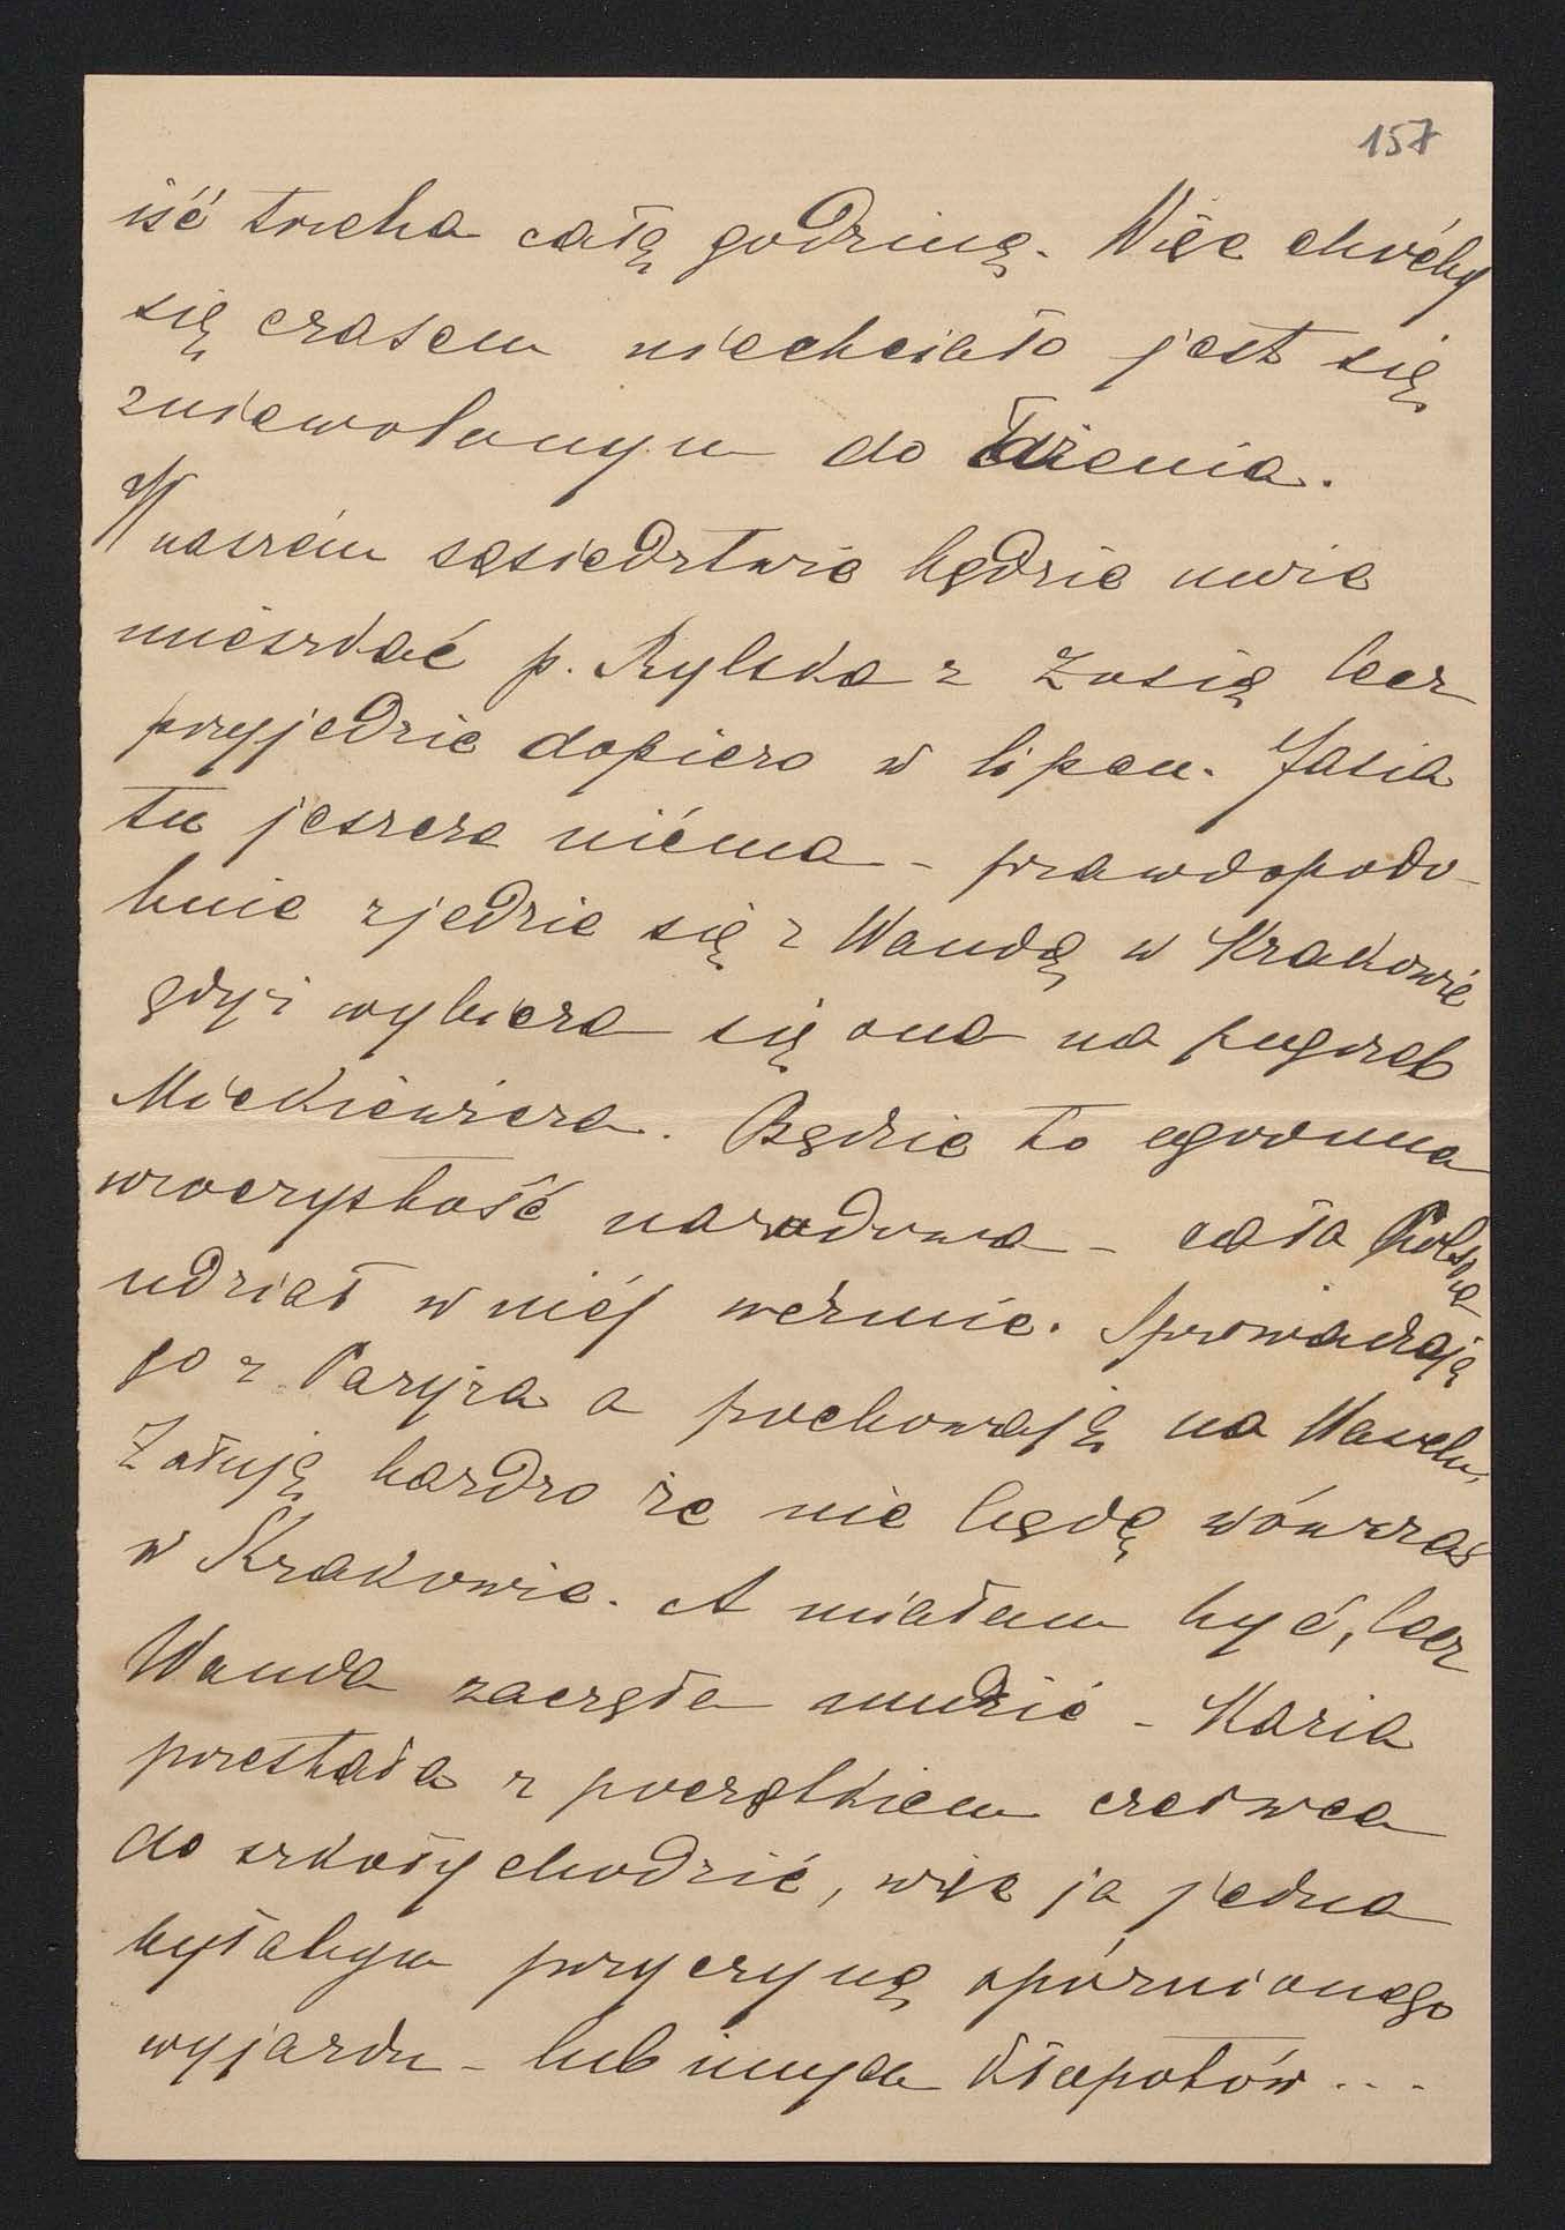 157
iść trzeba całą godzinę. Więc choćby
się czasem niechciało jest się
zniewolonym do łażenia.
W naszém sąsiedztwie będzie
mieszkać p. Rylska z Zosią lecz
przyjedzie dopiero w lipcu. Jasia
tu jeszcze niéma – prawdopodo-
bnie zjedzie się z Wandą w Krakowie
gdyż wybiera się ona na pogrzeb
Mickiewicza. Będzie to ogromna
uroczystość narodowa – cała Polska
udział w niéj weźmie. Sprowadzają
go z Paryża a pochowają na Wawelu.
Żałuję bardzo że nie będę wówczas
w Krakowie. A miałam być, lecz
Wanda zaczęła nudzić – Maria
przestała z początkiem czerwca
do szkoły chodzić, więc ja jedna
byłabym przyczyną opóźnionego
wyjazdu – lub innych kłopotów...